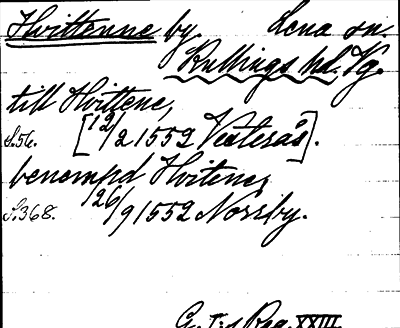 Hvittenne by. Lena sn.
Kullings hd. Vg.
till Hvittene,
S.56. [12/2 1552 Vesterås].
benempd Hvitene,
S.368. 26/9 1552 Norsby.
G. I:s Reg. XXIII